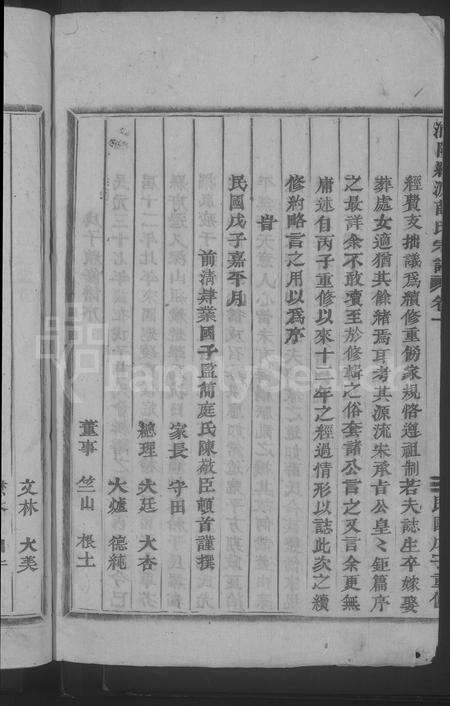 經費支拙議為續修重仿家規恪遵祖制若夫誌生卒嫁娶
葬處女適猶其餘緒焉耳考其源流宋承吉公皇々鉅篇序
之最詳余不敢贅至於修輯之俗套諸公言之又言余更無
庸述自丙子重修以來十二年之經過情形以誌此次之續
修約略言之用以為序
時
民國戊子嘉平月
前清肄業國子監簡庭氏陳敬臣頓首謹撰
家長 守田
總理 大廷 大杏
大爐 德純
董事 竺山 根土
文林 大美
FamilySearch